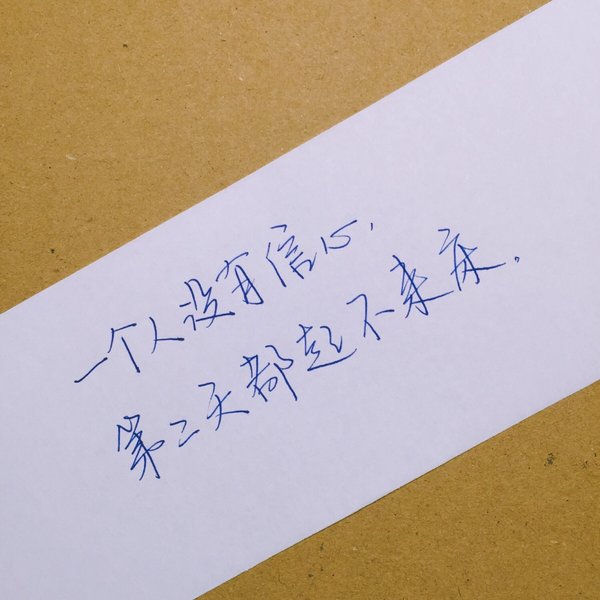 一个人没有信心,
第二天都起不来床.